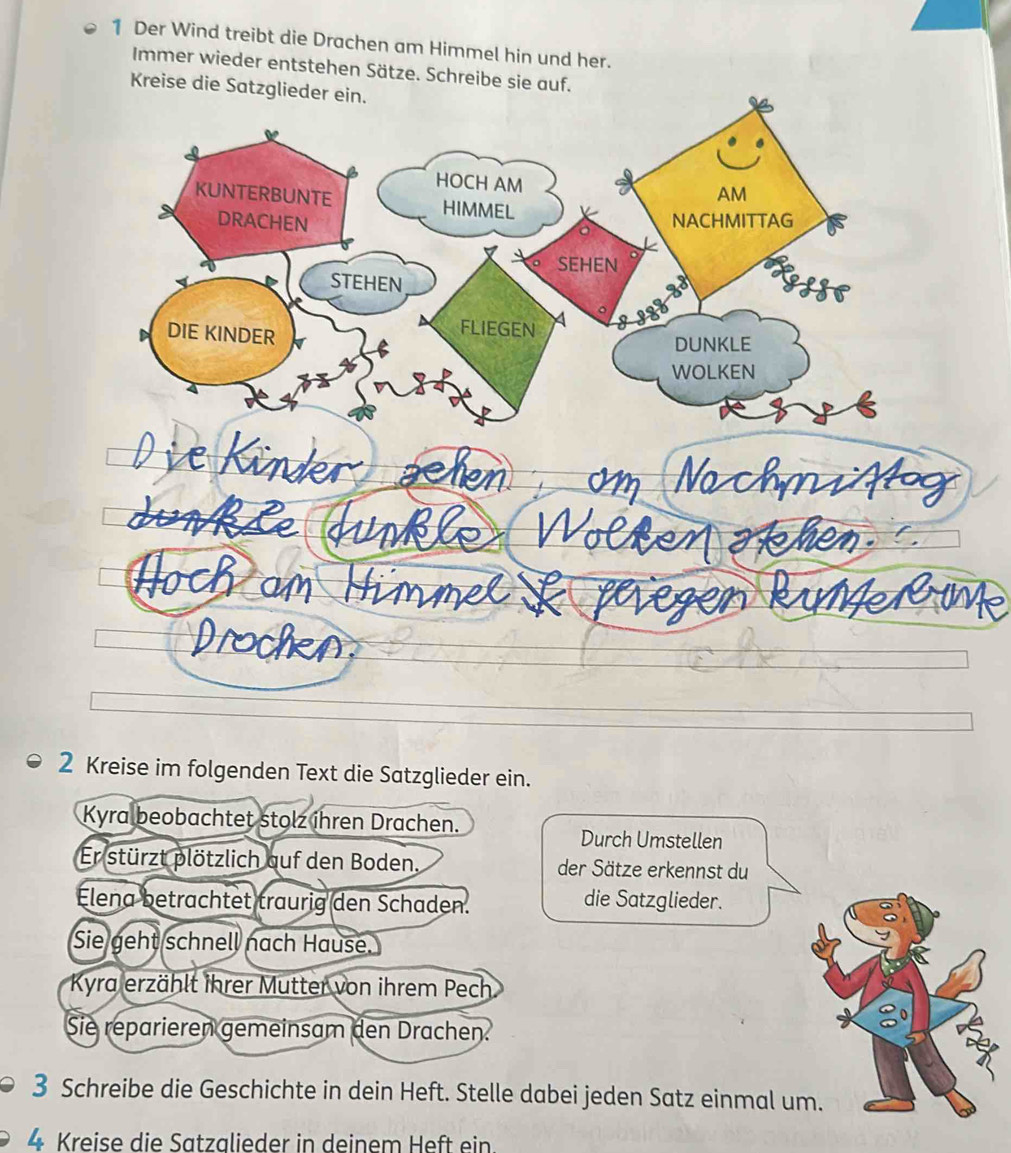 1 Der Wind treibt die Drachen am Himmel hin und her.
Immer wieder entstehen Sätze. Schreibe sie auf.
Kreise die Satzglieder ein.
KUNTERBUNTE
DRACHEN
HOCH AM
HIMMEL
AM
NACHMITTAG
SEHEN
STEHEN
DIE KINDER
FLIEGEN
DUNKLE
WOLKEN
Die Kinder sehen am Nachmittag
dunkle Wolken stehen.
Hoch am Himmel fliegen kunterbunte
Drachen.
2 Kreise im folgenden Text die Satzglieder ein.
Kyra beobachtet stolz ihren Drachen.
Er stürzt plötzlich auf den Boden.
Elena betrachtet traurig den Schaden.
Sie geht schnell nach Hause.
Kyra erzählt ihrer Mutter von ihrem Pech.
Sie reparieren gemeinsam den Drachen.
Durch Umstellen
der Sätze erkennst du
die Satzglieder.
3 Schreibe die Geschichte in dein Heft. Stelle dabei jeden Satz einmal um.
4 Kreise die Satzglieder in deinem Heft ein.